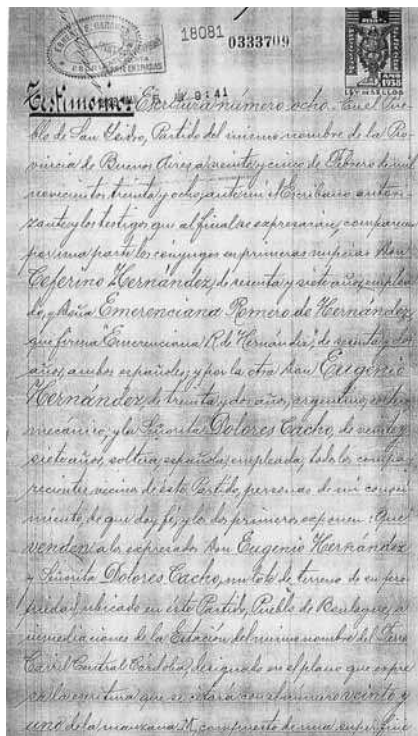 18081
0333709
LEY DE SELLOS
9:41
Testimonio: Escritura número ocho. En el Pue-
blo de San Isidro, Partido del mismo nombre de la Pro-
vincia de Buenos Aires, a veinte y cinco de Febrero de mil
novecientos treinta y ocho, ante mi Escribano autori-
zante y los testigos que al final se expresarán, comparecen
por una parte los cónyuges en primeras nupcias Don
Ceferino Hernández, de sesenta y siete años, emplea-
do, y Doña Emerenciana Romero de Hernández,
que firma "Emerenciana R. de Hernández", de sesenta y dos
años, ambos españoles; y por la otra Don Eugenio
Hernández de treinta y dos años, argentino, soltero
mecánico; y la Señorita Dolores Cacho, de veinte y
siete años, soltera, española, empleada; todos los compa-
recientes vecinos de éste Partido, personas de mi conoci-
miento, de que doy fé, y los dos primeros exponen: Que
venden a los expresados Don Eugenio Hernández
y Señorita Dolores Cacho, un lote de terreno de su pro-
piedad, ubicado en éste Partido, Pueblo de Boulogne, a
inmediaciones de la Estación del mismo nombre del Ferro
Carril Central Córdoba, designado en el plano que expre-
sa la escritura que se citará con el número veinte y
uno de la manzana M, compuesto de una superficie